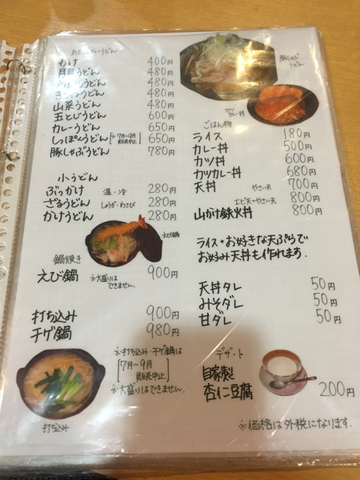 かけ 400円
月見うどん 480円
きつねうどん 480円
山菜うどん 480円
玉とじうどん 600円
カレーうどん 650円
しっぽくうどん [7月〜9月 販売中止] 650円
豚しゃぶうどん 780円
小うどん
ぶっかけ 温・冷 280円
ざるうどん しょうが・わさび 280円
かけうどん 280円
えび鍋
鍋焼き
えび鍋 900円
※大盛りは
できません。
打ち込み 900円
チゲ鍋 980円
※打ち込み チゲ鍋は
[7月〜9月
販売中止]
※大盛りはできません。
打込み
豚しゃぶ
うどん
カツ
カレー丼
ごはん物
ライス 180円
カレー丼 500円
カツ丼 600円
カツカレー丼 680円
天丼 700円
エビ天+やさい天 800円
山かけ鉄火丼 800円
ライス+お好きな天ぷらで
お好み天丼も作れます.
天丼タレ 50円
みそダレ 50円
甘ダレ 50円
デザート
自家製
杏仁豆腐 200円
※価格は外税になります.